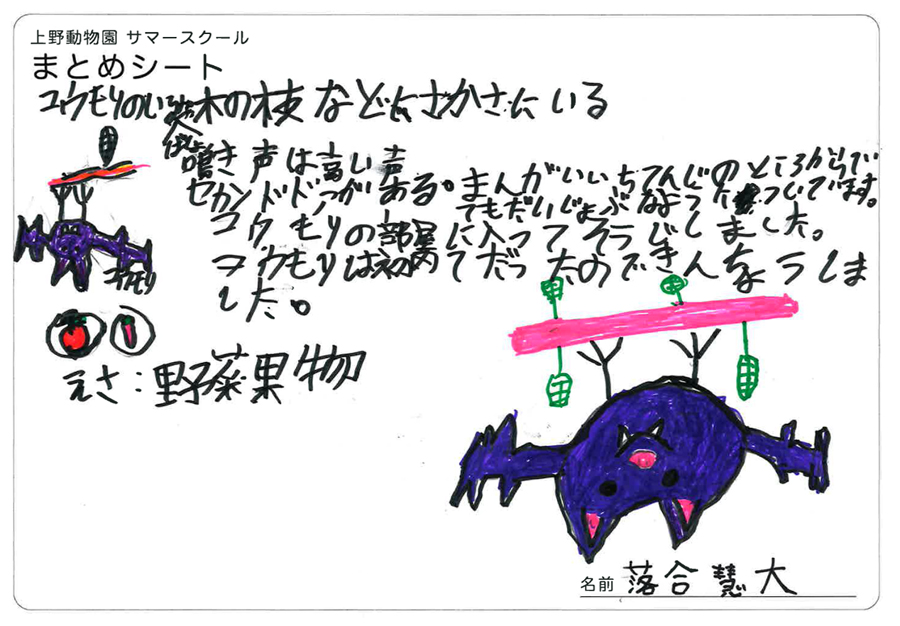 上野動物園 サマースクール
まとめシート
コウモリのいる 木の枝などにさかさにいる
鳴き声は高い声
セカンドドアがある。まんがいいちてんじのところからで
てもだいじょぶなようになっています。
コウモリの部屋に入ってそうじしました。
コウモリは初めてだったのできんちょうしま
した。
コウモリ
えさ:野菜果物
名前 落合慧大